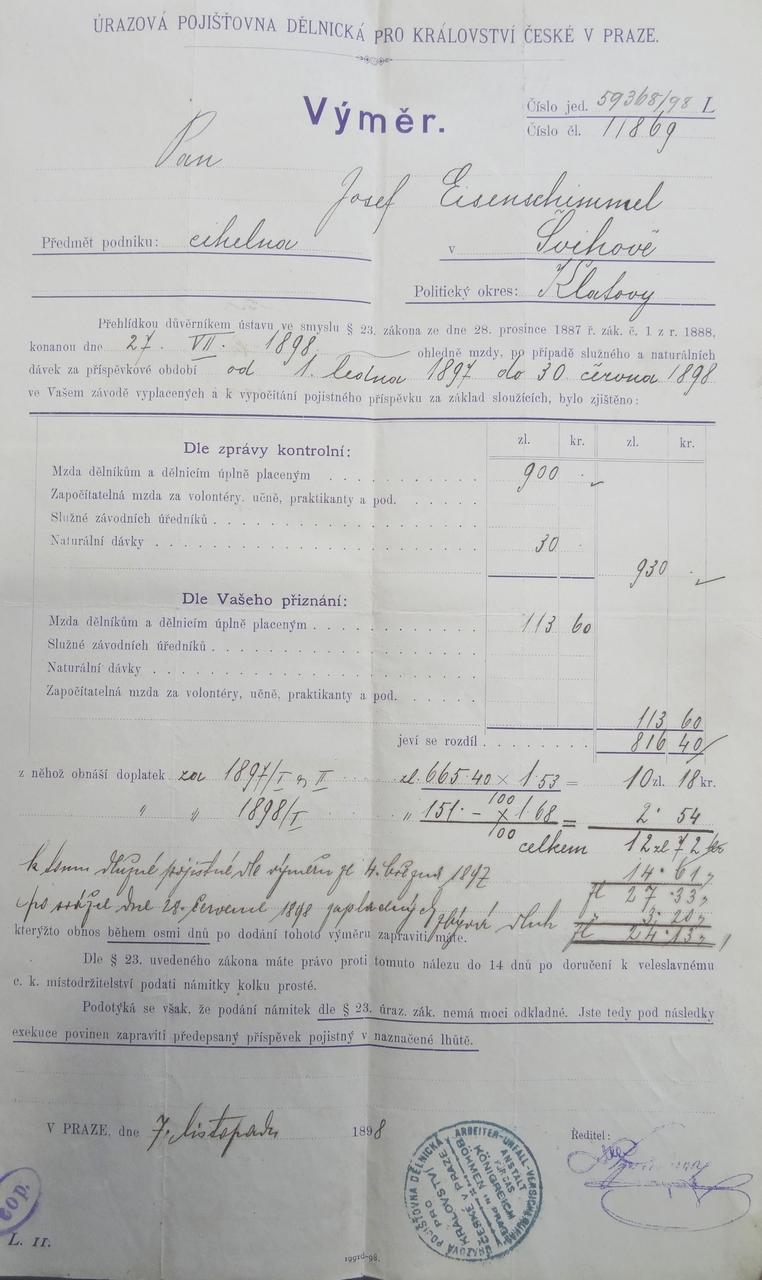 ÚRAZOVÁ POJIŠŤOVNA DĚLNICKÁ PRO KRÁLOVSTVÍ ČESKÉ V PRAZE.
Výměr.
Číslo jed. 59368/98 L
Číslo čl. 11869
Pan
Josef Eisenschimmel
Předmět podniku: cihelna v Švihově
Politický okres: Klatovy
Přehlídkou důvěrníkem ústavu ve smyslu § 23. zákona ze dne 28. prosince 1887 ř. zák. č. 1 z r. 1888,
konanou dne 27. VII. 1898 ohledně mzdy, po případě služného a naturálních
dávek za příspěvkové období od 1. ledna 1897 do 30 června 1898
ve Vašem závodě vyplacených a k vypočítání pojistného příspěvku za základ sloužících, bylo zjištěno:
zl. kr. zl. kr.
Dle zprávy kontrolní:
Mzda dělníkům a dělnicím úplně placeným 900 .
Započítatelná mzda za volontéry, učně, praktikanty a pod.
Služné závodních úředníků
Naturální dávky 30 .
930 .
Dle Vašeho přiznání:
Mzda dělníkům a dělnicím úplně placeným 113 60
Služné závodních úředníků
Naturální dávky
Započítatelná mzda za volontéry, učně, praktikanty a pod.
113 60
jeví se rozdíl 816 40
z něhož obnáší doplatek za 1897/I a II zl. 665·40 × 1·53 = 10 zl. 18 kr.
100
" " 1898/I " 151·- × 1·68 = 2· 54
100
celkem 12 zl 72 kr
k tomu dlužné pojistné dle výměru ze 4. března 1897 14·61 "
fl 27·33 "
po srážce dne 28. července 1898 zaplacených 3·20 "
zbývá dluh fl 24·13 "
kterýžto obnos během osmi dnů po dodání tohoto výměru zapraviti máte.
Dle § 23. uvedeného zákona máte právo proti tomuto nálezu do 14 dnů po doručení k veleslavnému
c. k. místodržitelství podati námitky kolku prosté.
Podotýká se však, že podání námitek dle § 23. úraz. zák. nemá moci odkladné. Jste tedy pod následky
exekuce povinen zapraviti předepsaný příspěvek pojistný v naznačené lhůtě.
V PRAZE, dne 7. listopadu 1898
Ředitel:
ARBEITER-UNFALL-VERSICHERUNGS-
ANSTALT
FÜR DAS
KÖNIGREICH
BÖHMEN IN PRAG
ÚRAZOVÁ POJIŠŤOVNA DĚLNICKÁ
PRO
KRÁLOVSTVÍ
ČESKÉ V PRAZE
cop.
L. II.